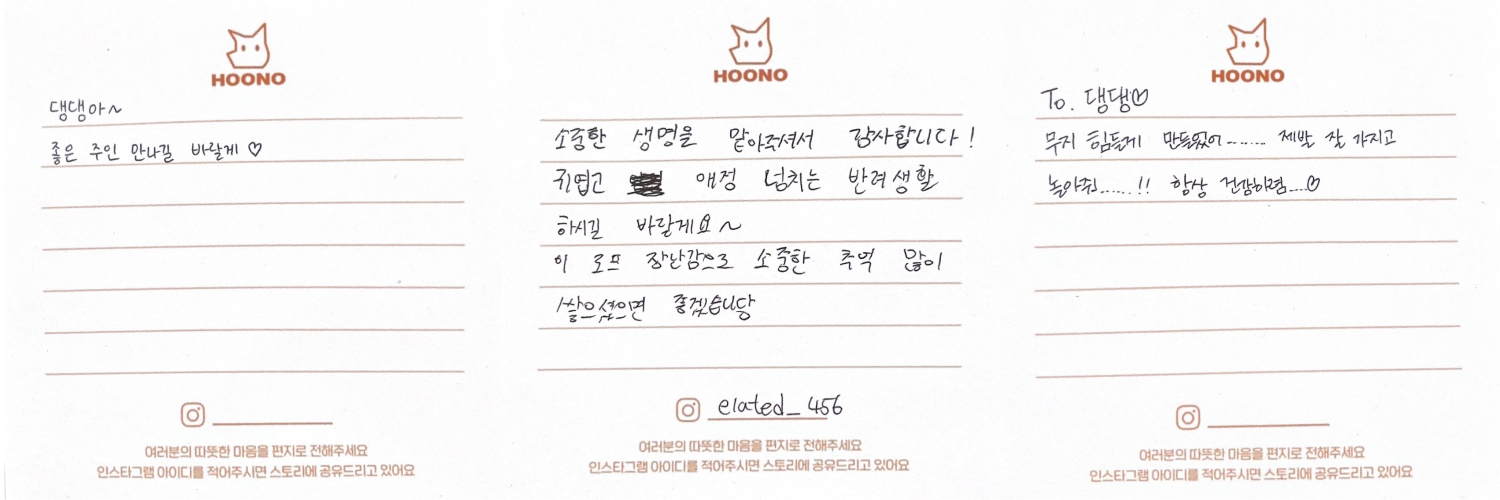 HOONO
댕댕아~
좋은 주인 만나길 바랄게 ♡
여러분의 따뜻한 마음을 편지로 전해주세요
인스타그램 아이디를 적어주시면 스토리에 공유드리고 있어요
HOONO
소중한 생명을 맡아주셔서 감사합니다!
귀엽고 애정 넘치는 반려생활
하시길 바랄게요~
이 로프 장난감으로 소중한 추억 많이
쌓으셨으면 좋겠습니당
elated_456
여러분의 따뜻한 마음을 편지로 전해주세요
인스타그램 아이디를 적어주시면 스토리에 공유드리고 있어요
HOONO
To. 댕댕♡
무지 힘들게 만들었어....... 제발 잘 가지고
놀아줘......!! 항상 건강하렴....♡
여러분의 따뜻한 마음을 편지로 전해주세요
인스타그램 아이디를 적어주시면 스토리에 공유드리고 있어요